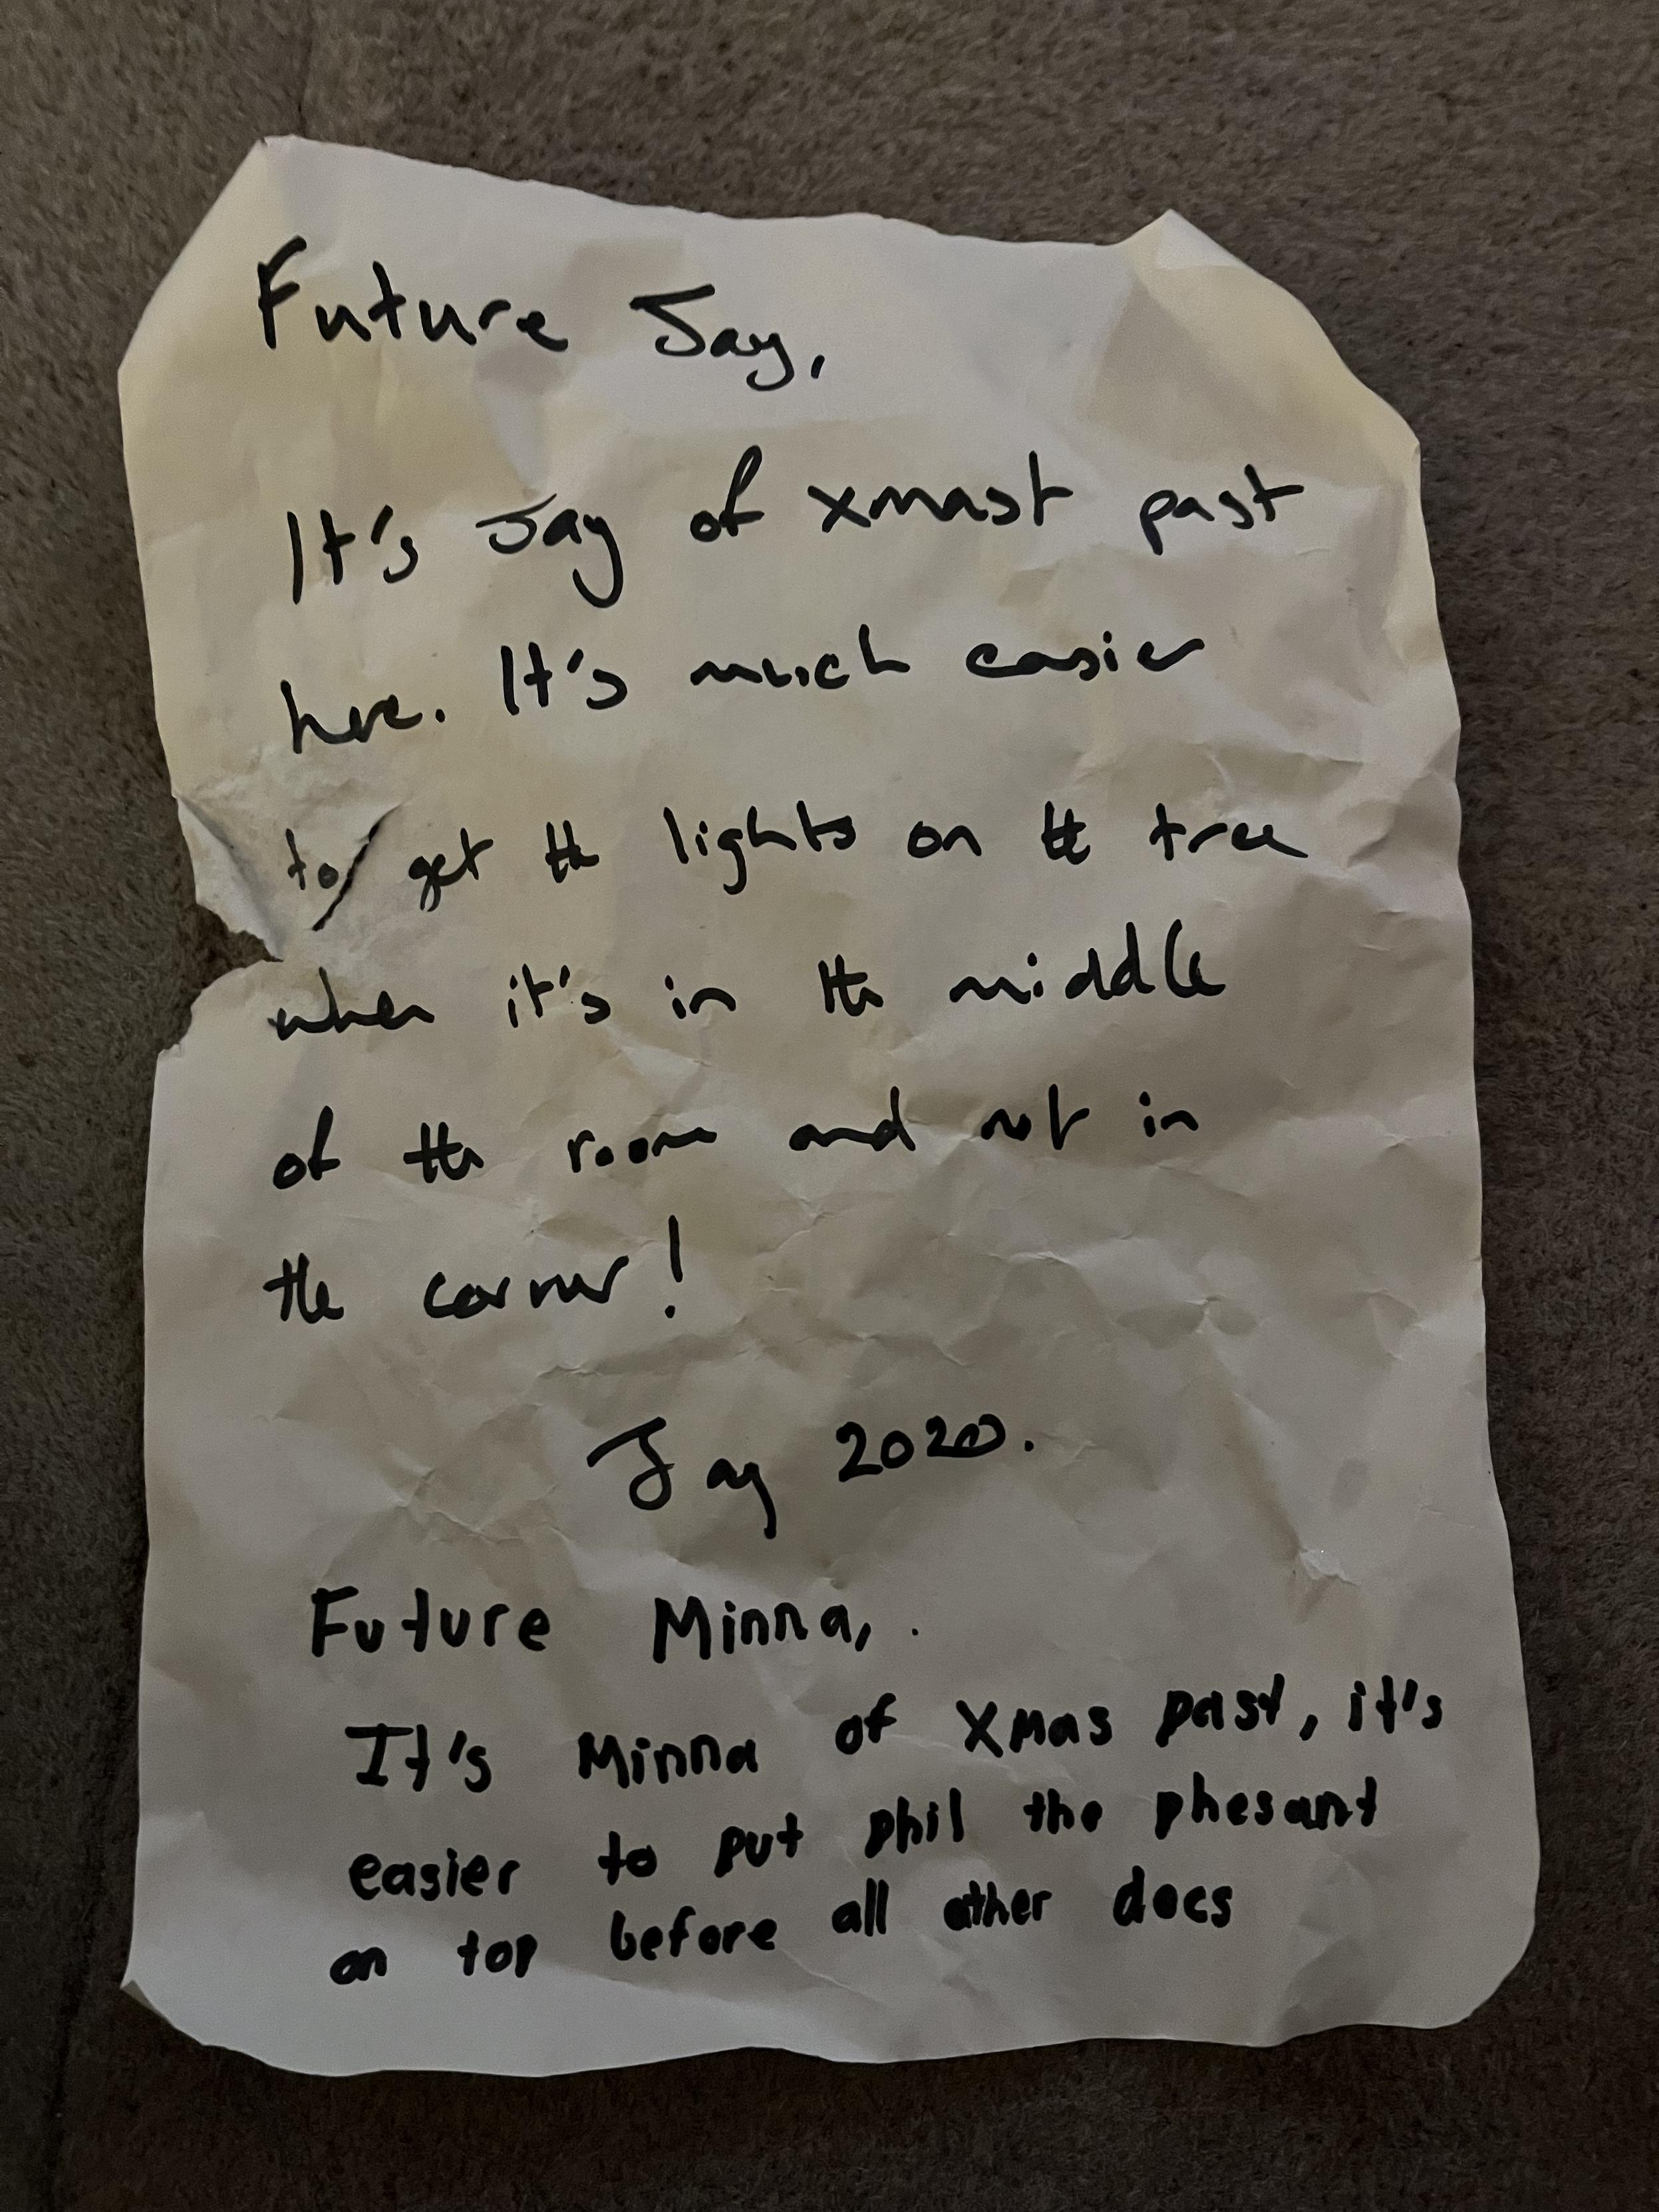 Future Jay,
It's Jay of xmast past
here. It's much easier
to get the lights on the tree
when it's in the middle
of the room and not in
the corner!
Jay 2020.
Future Minna,.
It's Minna of Xmas past, it's
easier to put phil the phesant
on top before all other decs